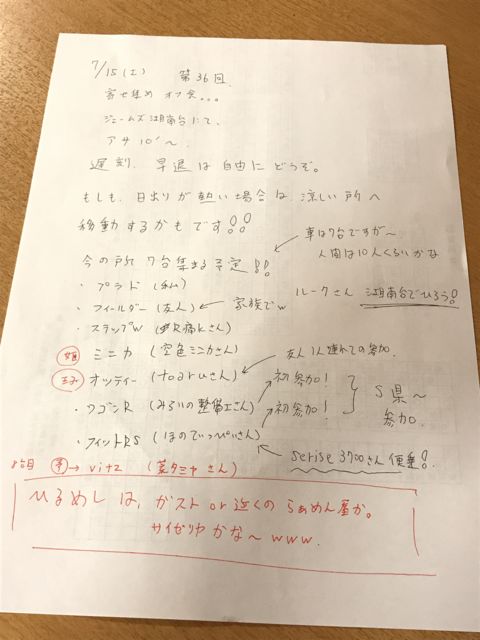 7/15(土) 第36回.
寄せ集め オフ会...
ジェームズ湖南台にて、
アサ 10'〜.
遅刻、早退は自由にどうぞ。
もしも、日当りが熱い場合は、涼しい所へ
移動するかもです!!
車は7台ですが〜
人間は10人くらいかな
今の所 7台集まる予定!!
・プラド (私)
ルークさん 湖南台でひろう!
・フィールダー (友人) 家族でw
・ステップW (腰痛Kさん)
ミニカ (空色ミニカさん)
友人1人連れての参加.
オッティー (toaruさん)
初参加!
・ワゴンR (みろりの整備士さん)
初参加!
S県〜
参加.
・フィットRS (ほのでぃっぴぃさん)
serise 3700さん 便乗!
8台目 予→ vitz (菜タミヤさん)
ひるめしは、ガスト or 近くの らぁめん屋か。
サイゼリヤ かな〜 www.